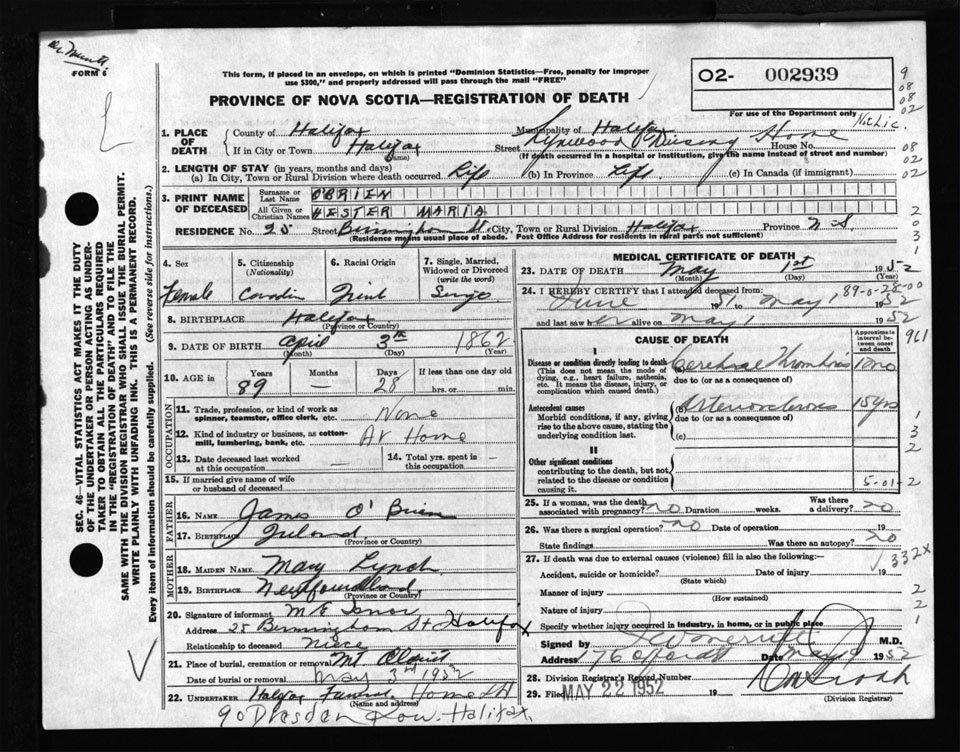 FORM 6
This form, if placed in an envelope, on which is printed "Dominion Statistics—Free, penalty for improper
use $300," and properly addressed will pass through the mail "FREE"
O2- 002939
PROVINCE OF NOVA SCOTIA—REGISTRATION OF DEATH
For use of the Department only
1. PLACE OF DEATH
County of Halifax Municipality of Halifax
If in City or Town Halifax (Name) Street Nursing Home House No.
(If death occurred in a hospital or institution, give the name instead of street and number)
2. LENGTH OF STAY (in years, months and days)
(a) In City, Town or Rural Division where death occurred Life (b) In Province Life (c) In Canada (if immigrant)
3. PRINT NAME OF DECEASED
Surname or Last Name O'BRIEN
All Given or Christian Names HESTER MARIA
RESIDENCE No. 25 Street Birmingham St. City, Town or Rural Division Halifax Province N.S.
(Residence means usual place of abode. Post Office Address for residents in rural parts not sufficient)
4. Sex Female
5. Citizenship (Nationality)
6. Racial Origin Irish
7. Single, Married, Widowed or Divorced (write the word) Single
8. BIRTHPLACE Halifax
(Province or Country)
9. DATE OF BIRTH April 3rd 1862
(Month) (Day) (Year)
10. AGE in Years 89 Months — Days 28 If less than one day old hrs. or min.
OCCUPATION
11. Trade, profession, or kind of work as spinner, teamster, office clerk, etc. None
12. Kind of industry or business, as cotton-mill, lumbering, bank, etc. At Home
13. Date deceased last worked at this occupation —
14. Total yrs. spent in this occupation —
15. If married give name of wife or husband of deceased
FATHER
16. NAME James O'Brien
17. BIRTHPLACE Ireland
(Province or Country)
MOTHER
18. MAIDEN NAME Mary Lynch
19. BIRTHPLACE Newfoundland
(Province or Country)
20. Signature of informant M E
Address 25 Birmingham St Halifax
Relationship to deceased Niece
21. Place of burial, cremation or removal Mt Olivet
Date of burial or removal May 3rd 1952
22. UNDERTAKER Halifax Funeral Home Ltd
(Name and address)
90 Dresden Row. Halifax.
MEDICAL CERTIFICATE OF DEATH
23. DATE OF DEATH May 1st 1952
(Month) (Day) (Year)
24. I HEREBY CERTIFY that I attended deceased from:
89-0-28-00
June 1951 to May 1 1952
and last saw her alive on May 1 1952
CAUSE OF DEATH
Approximate interval between onset and death
I
Disease or condition directly leading to death
(This does not mean the mode of dying, e.g., heart failure, asthenia, etc. It means the disease, injury, or complication which caused death.)
Cerebral Thrombosis
due to (or as a consequence of)
Antecedent causes
Morbid conditions, if any, giving rise to the above cause, stating the underlying condition last.
(b) Arteriosclerosis 15 yrs
due to (or as a consequence of)
(c)
II
Other significant conditions
contributing to the death, but not related to the disease or condition causing it.
5-01-2
25. If a woman, was the death associated with pregnancy? no Duration weeks. Was there a delivery? no
26. Was there a surgical operation? no Date of operation 19
State findings Was there an autopsy? no
27. If death was due to external causes (violence) fill in also the following:—
332X
Accident, suicide or homicide? Date of injury 19
(State which)
Manner of injury
(How sustained)
Nature of injury
Specify whether injury occurred in industry, in home, or in public place
Signed by M.D.
Address 76 Date May 1952
28. Division Registrar's Record Number
29. Filed MAY 22 1952 19
(Division Registrar)
SEC. 46—VITAL STATISTICS ACT MAKES IT THE DUTY
OF THE UNDERTAKER OR PERSON ACTING AS UNDER-
TAKER TO OBTAIN ALL THE PARTICULARS REQUIRED
IN THE "REGISTRATION OF DEATH" AND TO FILE THE
SAME WITH THE DIVISION REGISTRAR WHO SHALL ISSUE THE BURIAL PERMIT.
WRITE PLAINLY WITH UNFADING INK. THIS IS A PERMANENT RECORD.
Every item of information should be carefully supplied. (See reverse side for instructions.)
9
08
08
02
08
02
02
2
0
3
1
961
1
3
2
2
2
1